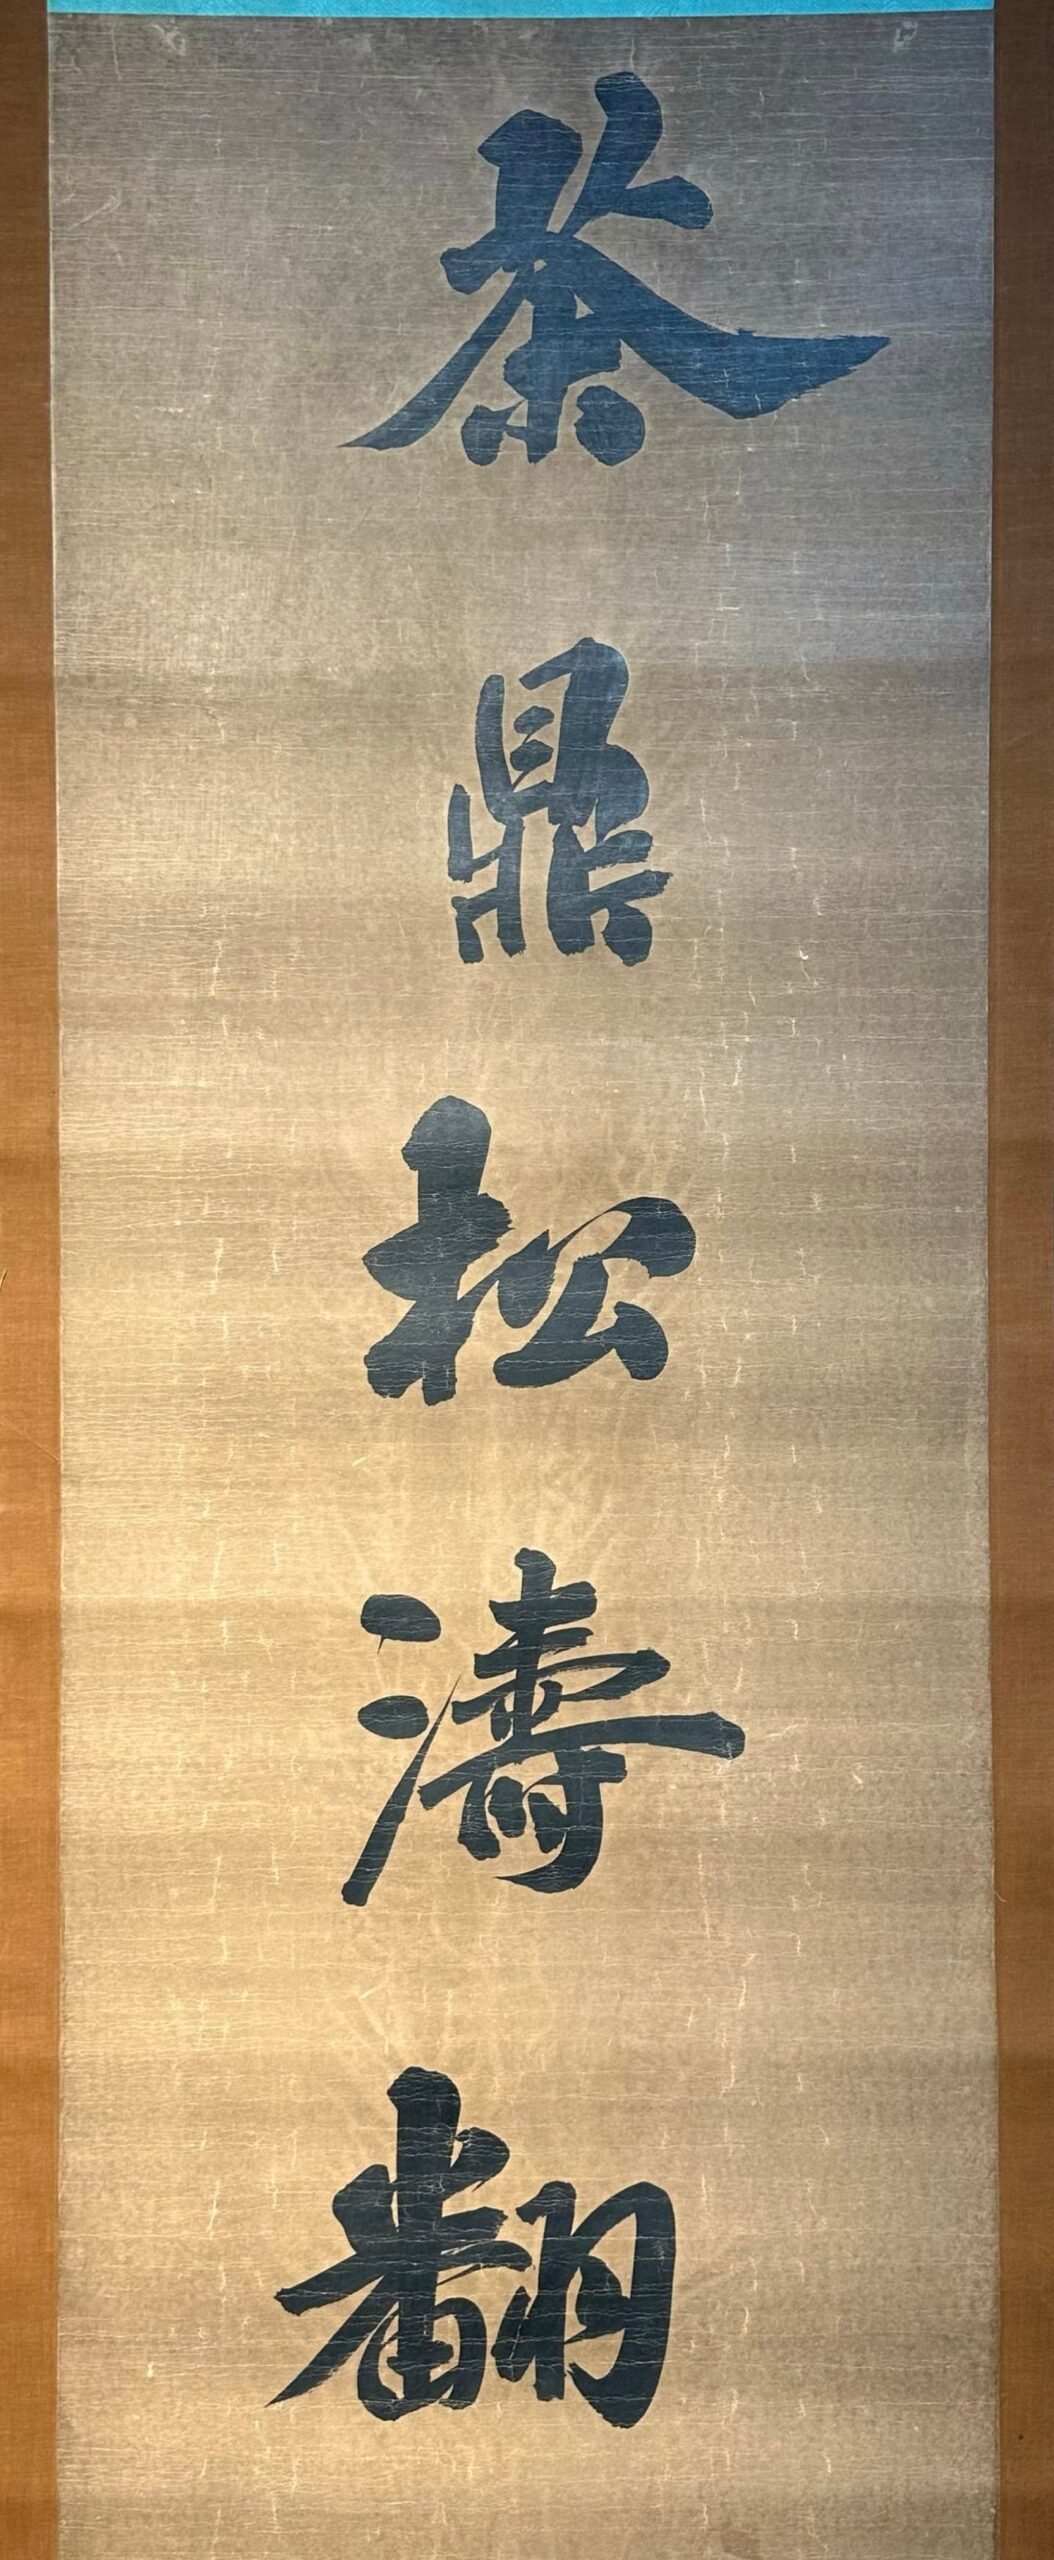 茶鼎松濤翻